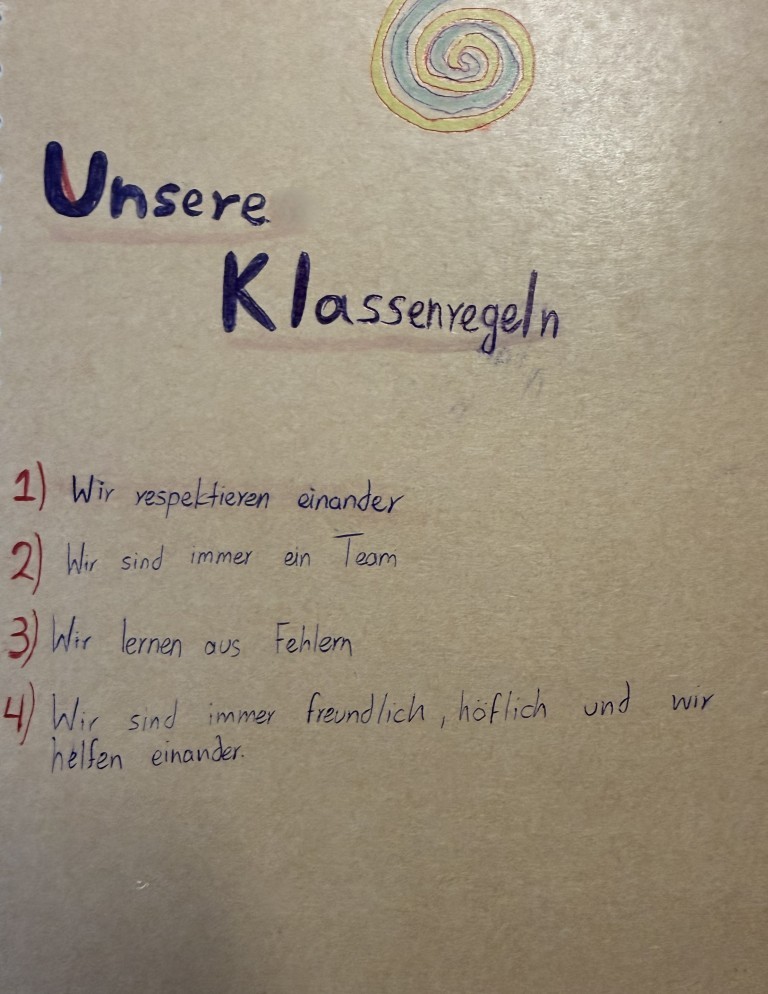 Unsere
Klassenregeln
1) Wir respektieren einander
2) Wir sind immer ein Team
3) Wir lernen aus Fehlern
4) Wir sind immer freundlich, höflich und wir
helfen einander.